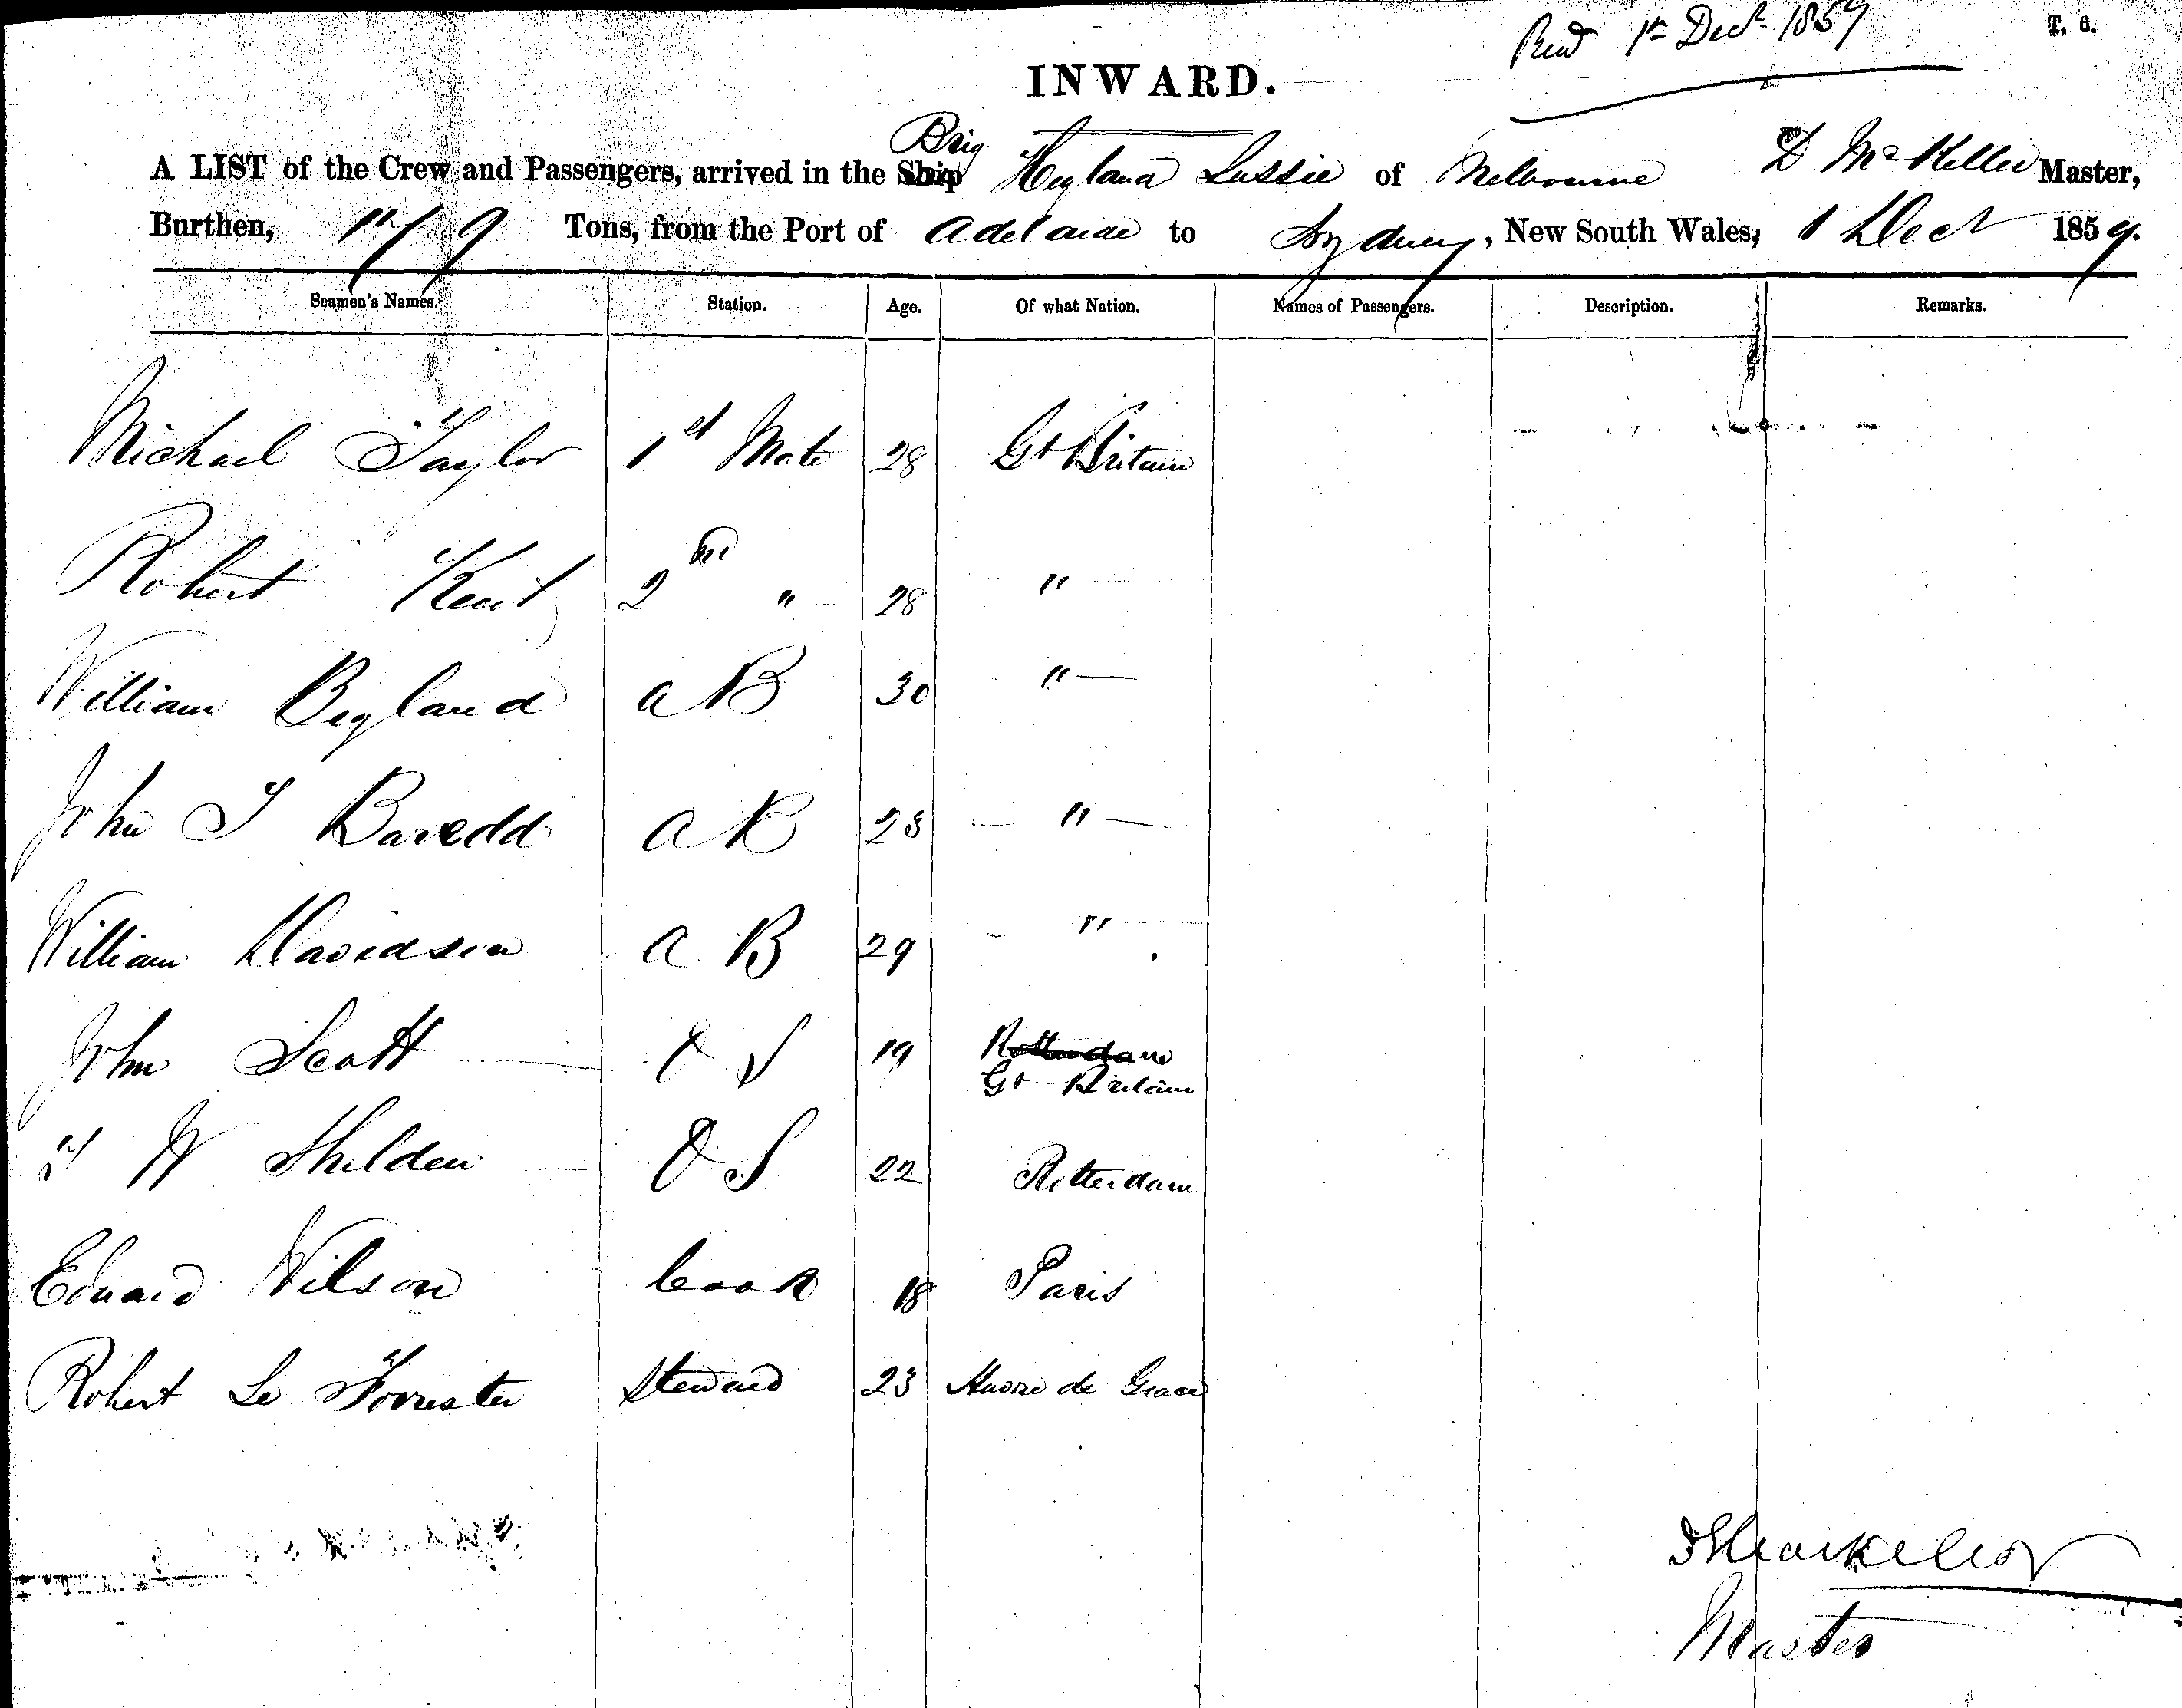 1st Decr 1859
T. 6.
INWARD.
Brig
A LIST of the Crew and Passengers, arrived in the Ship Hyland Lassie of Melbourne D McKeller Master,
Burthen, 179 Tons, from the Port of Adelaide to Sydney, New South Wales, 1 Dect 1859.
Seamen's Names. Station. Age. Of what Nation. Names of Passengers. Description. Remarks.
Michael Taylor 1st Mate 28 Gt Britain
Robert Kent 2nd " 28 "
William Bygland AB 30 "
John T Baredd AB 23 "
William Davidson AB 29 "
John Scott OS 19 Rotterdam
Gt Britain
T W Shelden OS 22 Rotterdam
Edward Wilson Cook 18 Paris
Robert Le Forrester Steward 23 Havre de Grace
Master